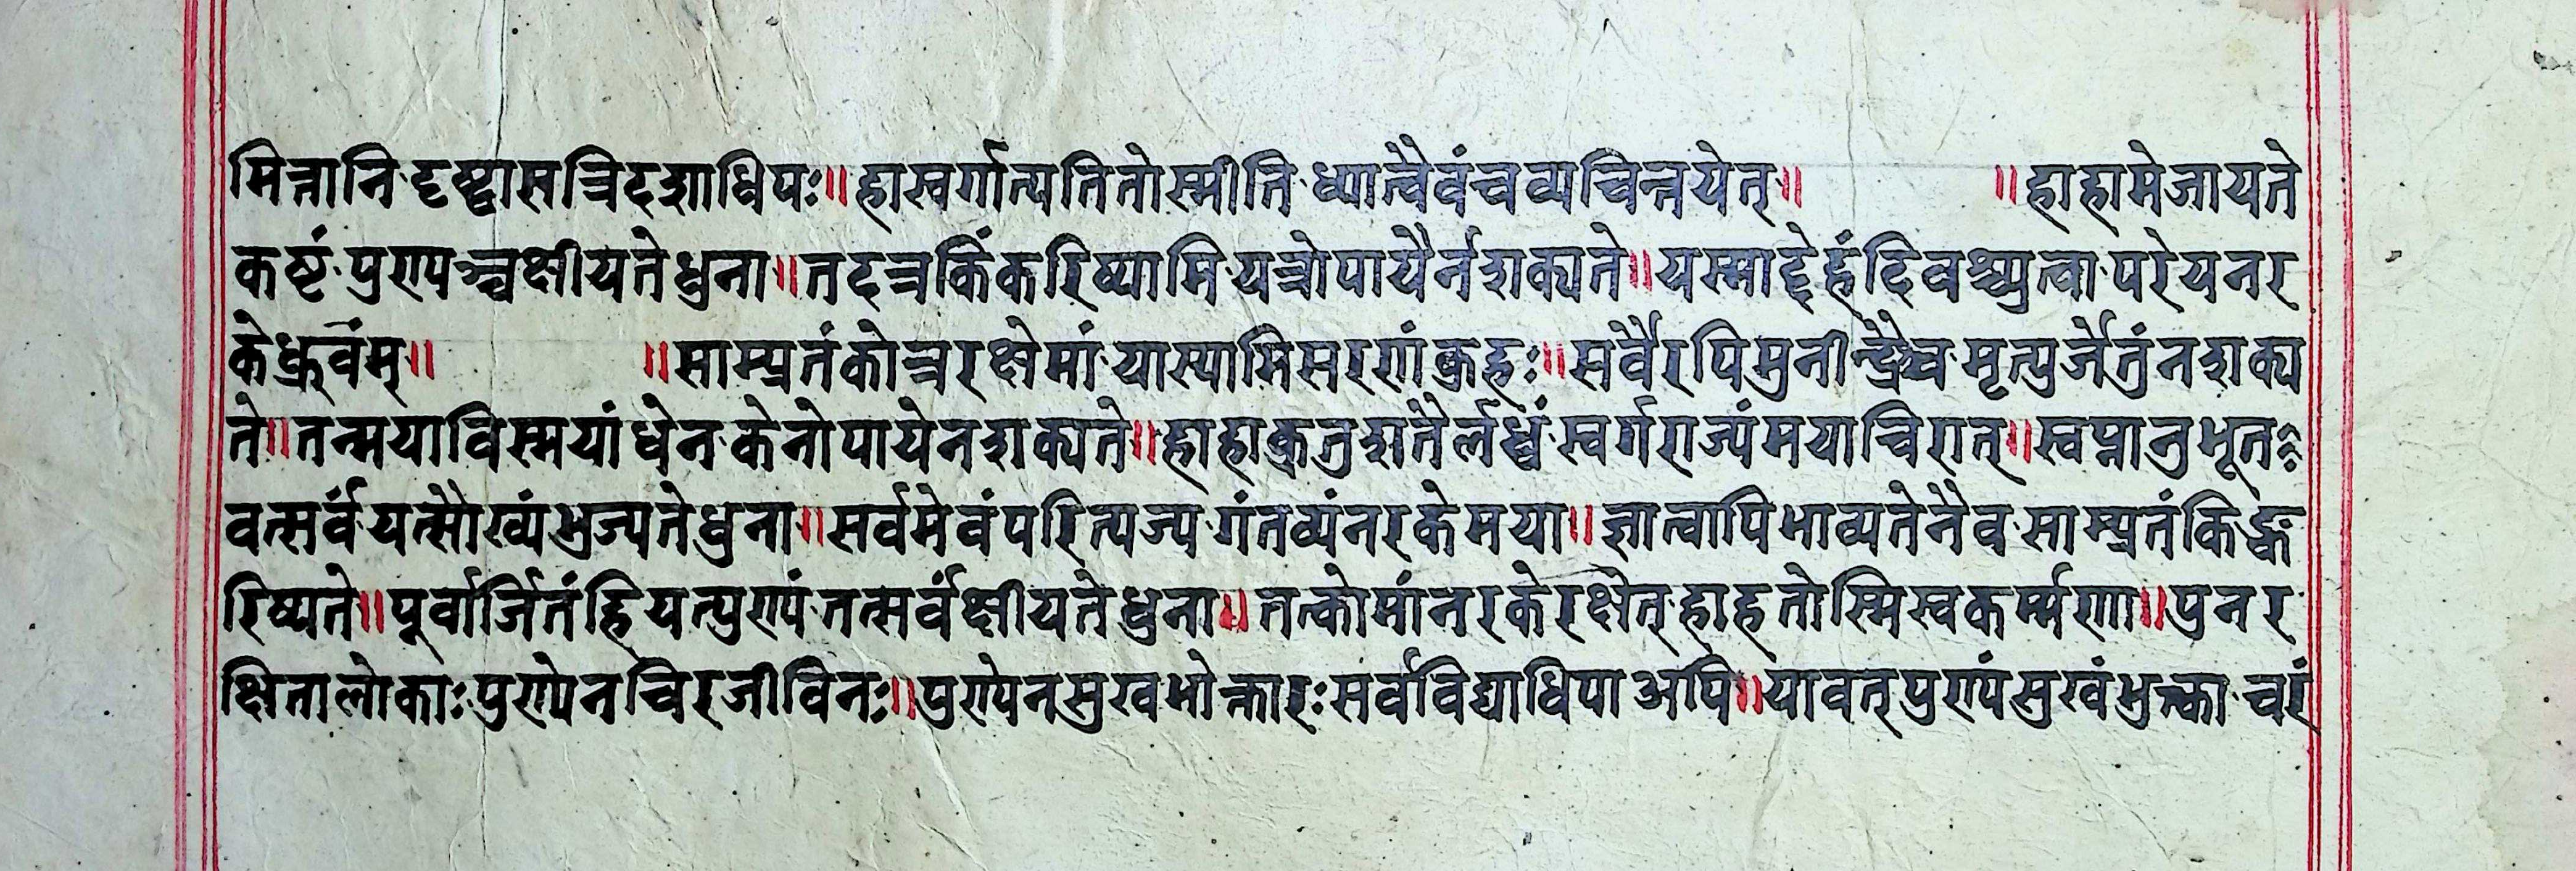 मित्तानि दृष्ट्वा स त्रिदशाधिपः॥ हा स्वर्गात्पतितोस्मीति ध्यात्वैवं च व्यचिन्तयेत्॥ ॥ हा हा मे जायते
कष्टं पुण्यञ्च क्षीयतेधुना॥ तदत्र किं करिष्यामि यत्रोपायैर्न शक्यते॥ यस्माद्देहं दिवश्च्युत्वा परेयं नर
के ध्रुवंम्॥ ॥ साम्प्रतं कोत्र रक्षे मां यास्यामि सरणं क्रुहः॥ सर्वैरपि मुनीन्द्रैश्च मृत्युर्जेतुं न शक्य
ते॥ तन्मया विस्मयांधेन केनोपायेन शक्यते॥ हा हा क्रतुशतैर्लब्धं स्वर्गराज्यं मयाचिरात्॥ स्वप्नानुभूत
वत्सर्वं यत्सौख्यं भुज्यतेधुना॥ सर्वमेवं परित्यज्य गंतव्यं नरके मया॥ ज्ञात्वापि भाव्यते नैव साम्प्रतं किङ्क
रिष्यते॥ पूर्वार्जितं हि यत्पुण्यं तत्सर्वं क्षीयतेधुना॥ तत्को मां नरके रक्षेत् हा हतोस्मि स्वकर्म्मणा॥ पुन र
क्षिता लोकाः पुण्येन चिरजीविनः॥ पुण्येन सुखभोक्तारः सर्वविद्याधिपा अपि॥ यावत् पुण्यं सुखं भुक्त्वा चरं